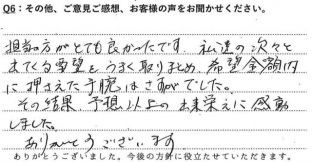 Q6：その他、ご意見ご感想、お客様の声をお聞かせください。
担当の方がとても良かったです。私達の次々と
出てくる要望をうまく取りまとめ、希望金額内
に押さえた手腕はさすがでした。
その結果、予想以上の出来栄えに感動
しました。
ありがとうございます
ありがとうございました。今後の方針に役立たせていただきます。